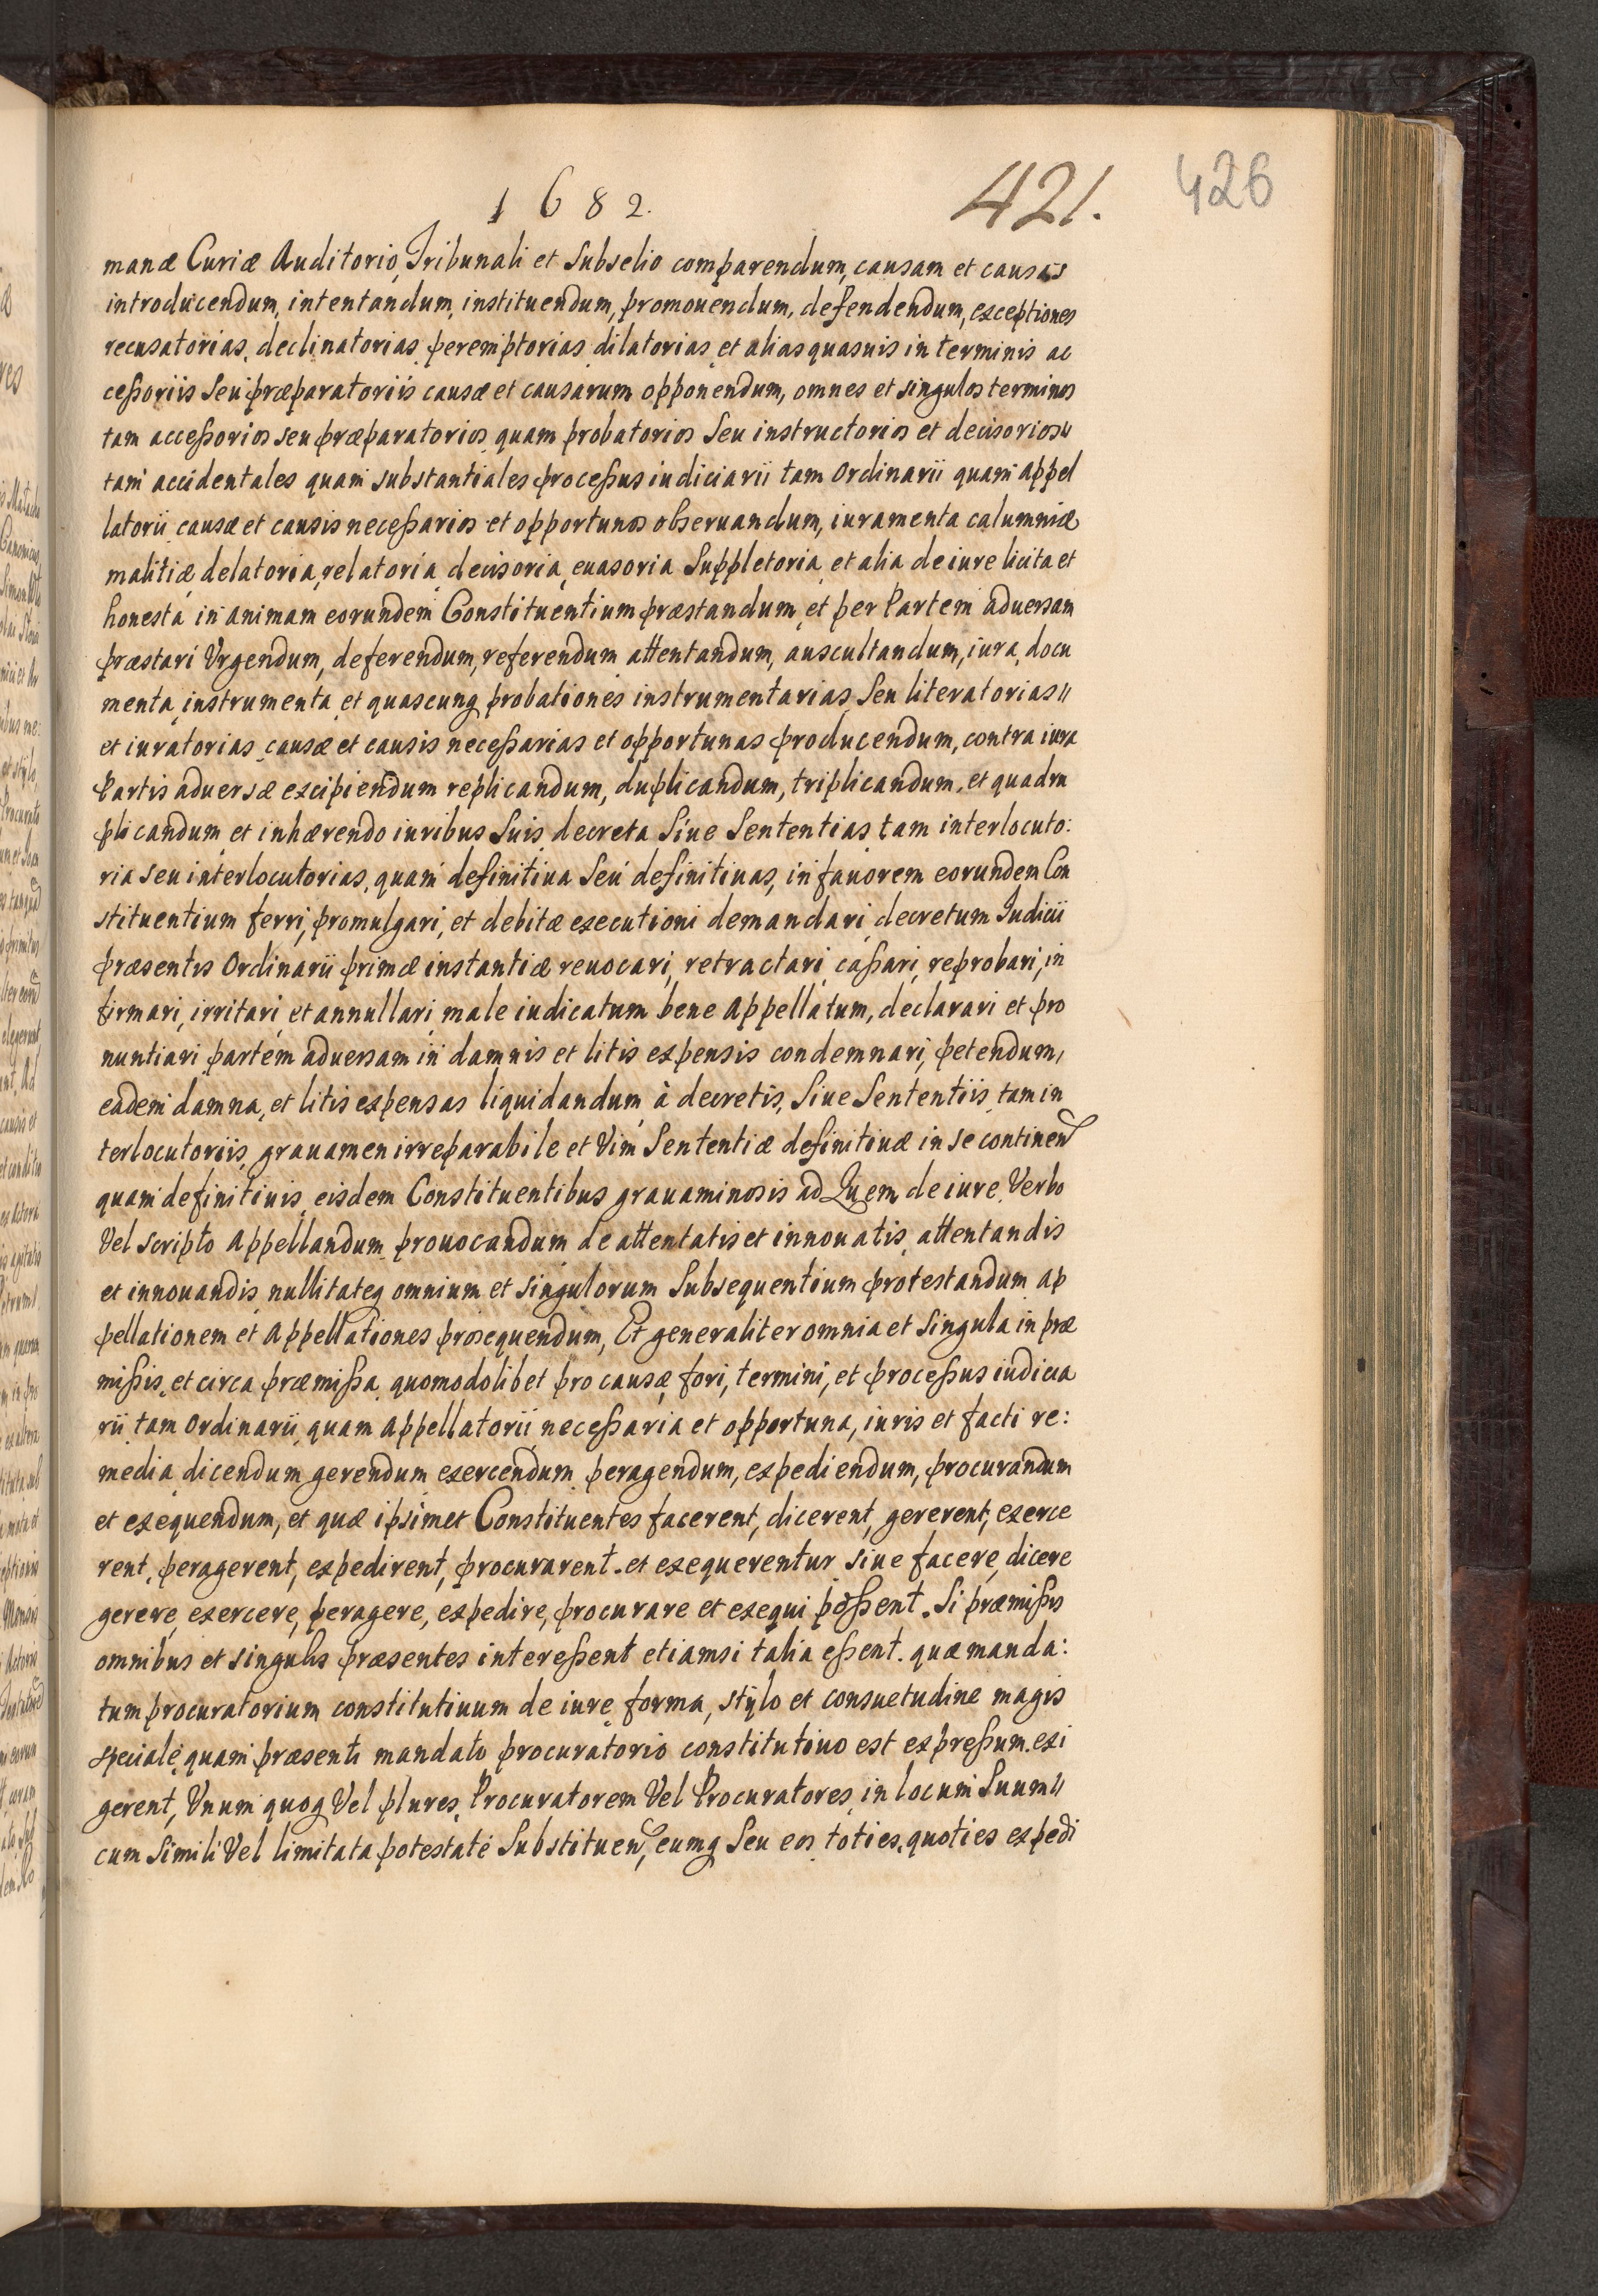 1682.
421.
426
manæ Curiæ Auditorio, Tribunali et Subselio comparendum, causam et causas
introducendum, intentandum, instituendum, promouendum, defendendum, exceptiones
recusatorias, declinatorias, peremptorias, dilatorias, et alias quasuis in terminis ac
ceßoriis Seu præparatoriis causæ et causarum opponendum, omnes et singulos terminos
tam acceßorios seu præparatorios quam probatorios Seu instructorios et decisorios〃
tam accidentales quam substantiales proceßus iudiciarii tam Ordinarii quam appel
latorii causæ et causis neceßarios et opportunos obseruandum, iuramenta calumniæ
malitiæ delatoria, relatoria, decisoria, euasoria Suppletoria, et alia de iure licita et
honesta in animam eorundem Constituentium præstandum et per Partem aduersam
præstari Vrgendum, deferendum, referendum attentandum, auscultandum, iura, docu
menta, instrumenta, et quascunq probationes instrumentarias Seu literatorias〃
et iuratorias, causæ et causis neceßarias et opportunas producendum, contra iura
Partis aduersæ excipiendum replicandum, duplicandum, triplicandum, et quadru
plicandum et inhærendo iuribus Suis, decreta Siue Sententias tam interlocuto:
ria seu interlocutorias, quam definitiua Seu definitiuas, in fauorem eorundem Con
stituentium ferri, promulgari, et debitæ executioni demandari, decretum Iudicii
præsentis Ordinarii primæ instantiæ reuocari, retractari, caßari, reprobari, in
firmari, irritari, et annullari, male iudicatum bene appellatum, declarari et pro
nuntiari, partem aduersam in damnis et litis expensis condemnari, petendum,
eadem damna, et litis expensas liquidandum, à decretis, Siue Sententiis, tam in
terlocutoriis, grauamen irreparabile et Vim Sententiæ definitiuæ in se continen
quam definitiuis, eisdem Constituentibus grauaminosis ad Quem de iure, Verbo
Vel scripto Appellandum, prouocandum de attentatis et innouatis, attentandis
et innouandis, nullitateq omnium et singulorum Subsequentium protestandum, ap
pellationem et Appellationes prosequendum, Et generaliter omnia et Singula in præ
mißis, et circa præmißa, quomodolibet pro causæ fori, termini, et proceßus iudicia
rii, tam Ordinarii, quam appellatorii, neceßaria et opportuna, iuris et facti re:
media, dicendum, gerendum, exercendum, peragendum, expediendum, procurandum
et exequendum, et quæ ipsimet Constituentes facerent, dicerent, gererent, exerce
rent, peragerent, expedirent, procurarent, et exequerentur Siue facere, dicere
gerere, exercere, peragere, expedire, procurare et exequi poßent. Si præmißis
omnibus et singulis præsentes intereßent etiamsi talia eßent, quæ manda:
tum procuratorium constitutiuum de iure, forma, stylo et consuetudine magis
speciale, quam præsenti mandato procuratorio constitutiuo est expreßum, exi
gerent, Vnum quoq Vel plures, Procuratorem Vel Procuratores, in locum Suum〃
cum Simili Vel limitata potestate Substituen, eumq Seu eos toties, quoties expedi